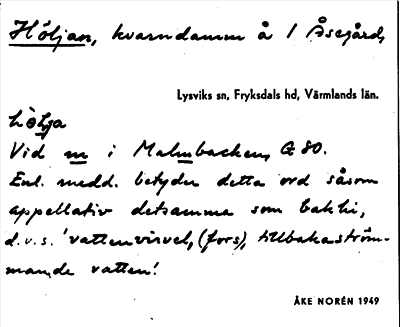 Höljan, kvarndamm å 1 Åsegård,
Lysviks sn, Fryksdals hd, Värmlands län.
Vid m i Malmbacken, G 80.
Enl. medd. betyder detta ord såsom
appellativ detsamma som bakhi,
d.v.s. 'vattenvirvel, (fors), tillbakaström-
mande vatten'.
ÅKE NORÉN 1949